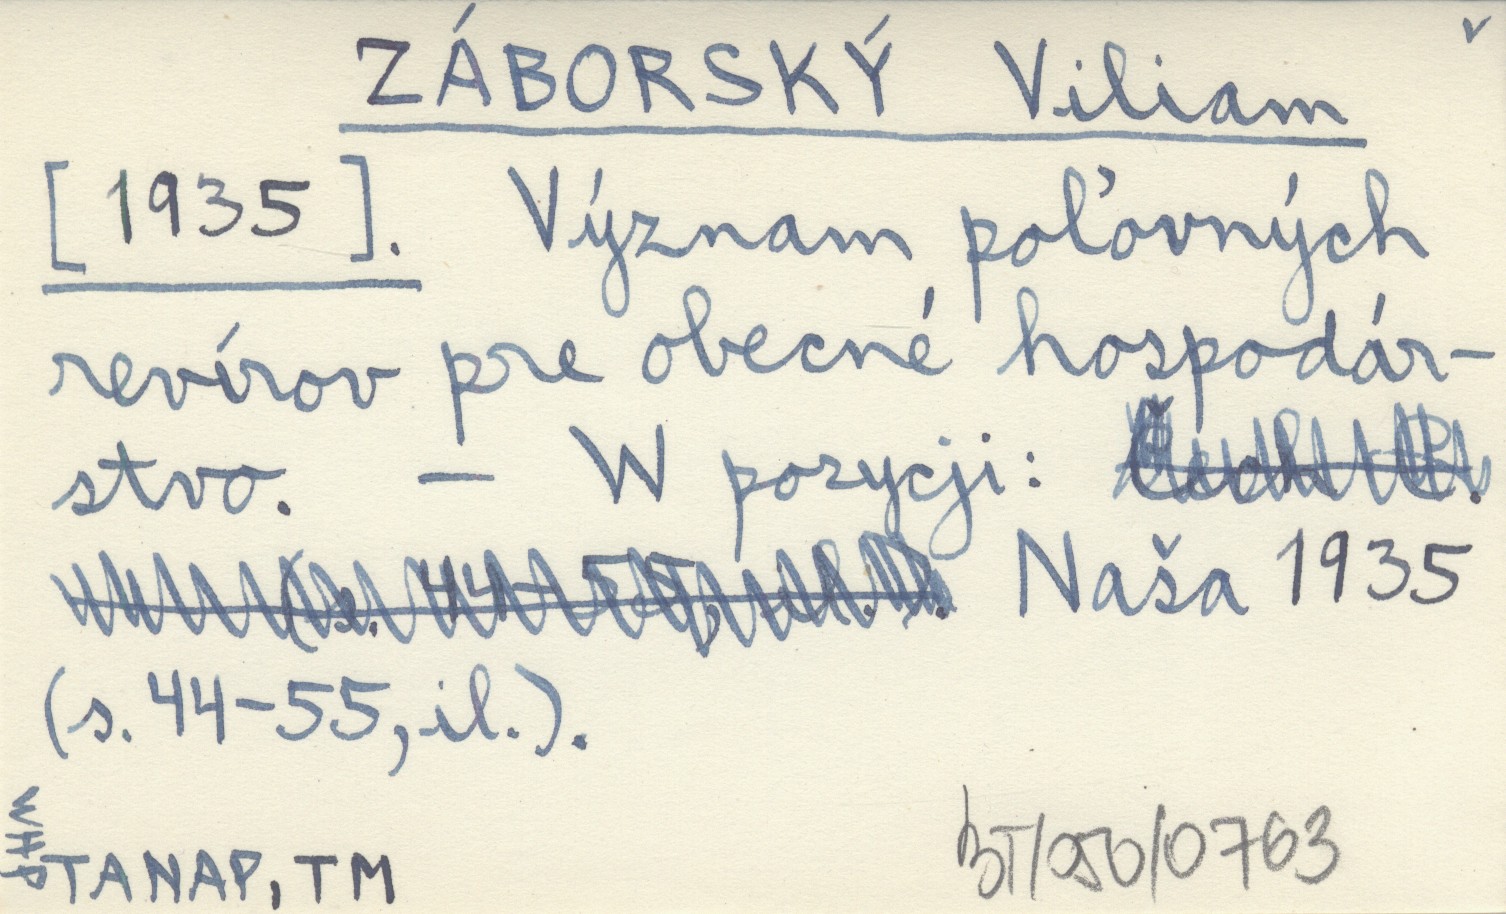 v
ZÁBORSKÝ Viliam
[1935]. Význam poľovných
revírov pre obecné hospodár-
stvo. — W pozycji:
(s. 44-55, il.). Naša 1935
(s. 44-55, il.).
WHP
TANAP, TM
BT/050/0763